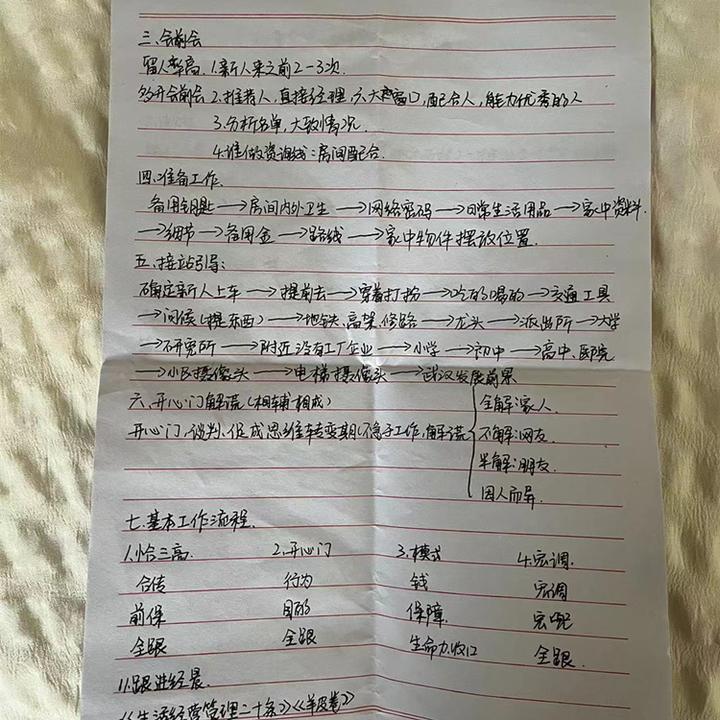 三、会前会
留人率高. 1.新人来之前2-3次.
多开会前会 2.推荐人,直接经理,六大窗口,配合人,能力优秀的人
3.分析名单,大致情况.
4.谁做资询线:房间配合.
四.准备工作.
备用钥匙→房间内外卫生→网络密码→日常生活用品→家中资料.
→细节→备用金→路线→家中物件摆放位置.
五、接站引导:
确定新人上车→提前去→穿着打扮→吃的喝的→交通工具
→问候(提东西)→地铁、高架、修路→龙头→派出所→大学
→研究所→附近没有工厂企业→小学→初中→高中、医院
→小区摄像头→电梯摄像头→武汉发展前景
六、开心门解谎(相辅相成)
开心门,谈判、促成思维转变期(不急于工作,解谎
全解:家人.
不解:网友.
半解:朋友.
因人而异.
七.基本工作流程.
1.恰三高. 2.开心门 3.模式 4.宏调.
合传 行为 钱 宏调
前保 目的 保障. 宏呢
全跟 全跟 生命力.收口 全跟.
11.跟进经晨.
《生活经营管理二十条》《羊皮卷》